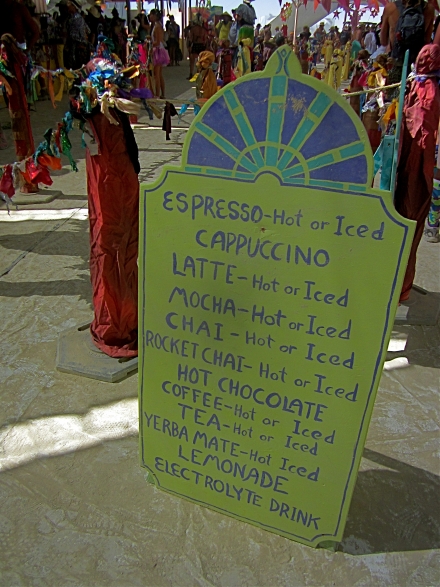 ESPRESSO-Hot or Iced
CAPPUCCINO
LATTE-Hot or Iced
MOCHA-Hot or Iced
CHAI-Hot or Iced
ROCKET CHAI-Hot or Iced
HOT CHOCOLATE
COFFEE-Hot or Iced
TEA-Hot or Iced
YERBA MATE-Hot Iced
LEMONADE
ELECTROLYTE DRINK